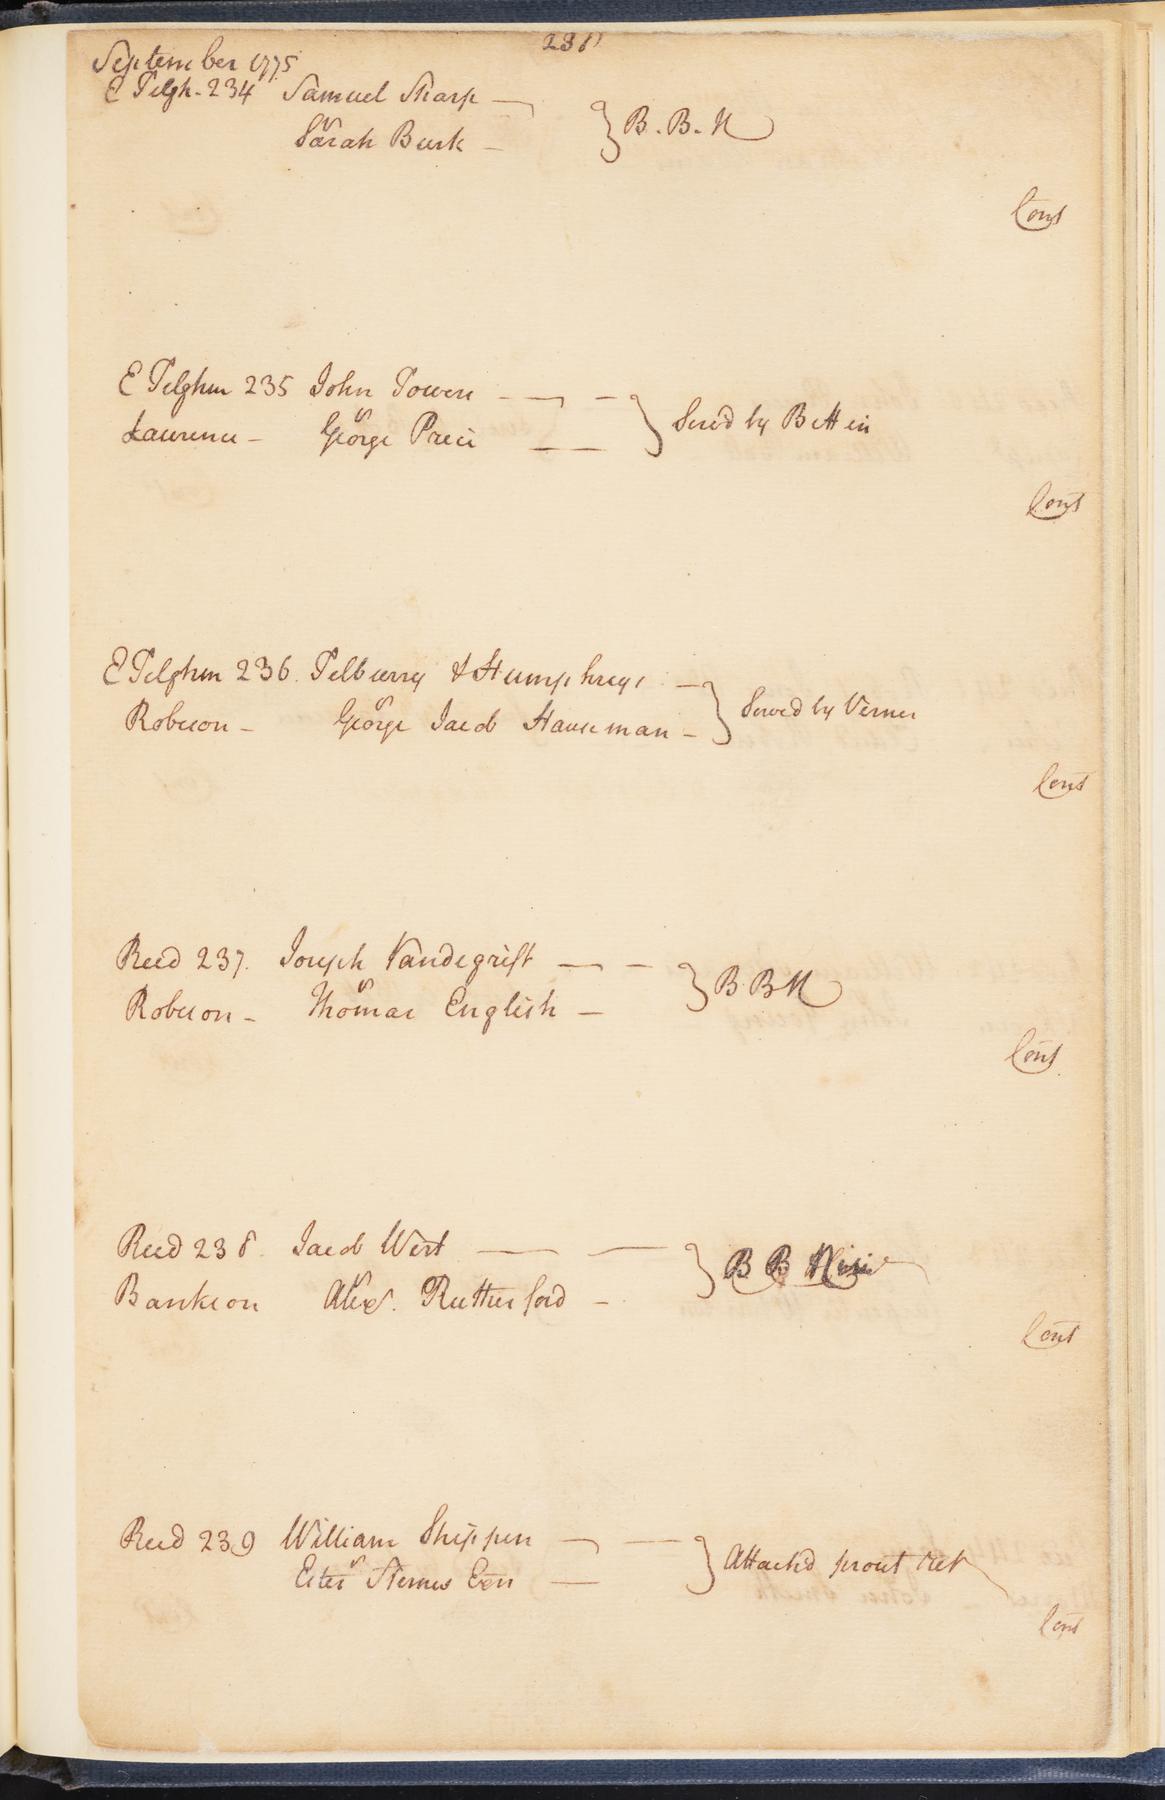 231
September 1775
E Tilgh. 234 Samuel Sharp
vs
Sarah Burk
} B. B. N
Cont
E Tilghm 235 John Towers
vs
Lawrence George Price
} Serv'd by Bettin
Cont
E Tilghm 236. Tilburry & Humphreys
vs
Robeson George Jacob Hauseman
} Served by Verner
Cont
Reed 237. Joseph Vandegrift
vs
Robeson Thomas English
} B B N
Cont
Reed 238. Jacob West
vs
Bankson Alexr. Rutherford
} B B
Cont
Reed 239 William Shippen
vs
Een
} Attach'd prout ret
Cont